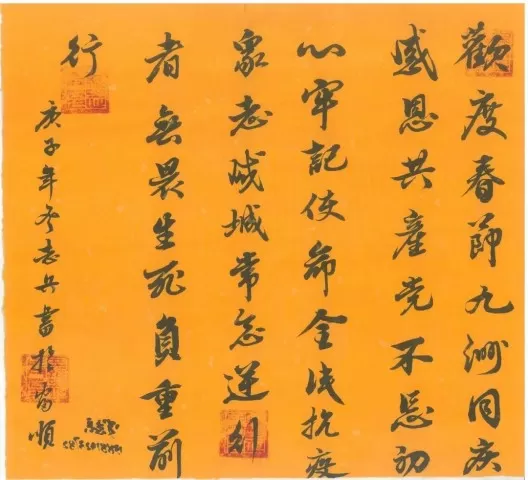 歡度春節九洲同庆
感恩共產党不忘初
心牢記使命全线抗疫
衆志城常逆行
者無畏生死負重前
行
庚子年志兵書於富順